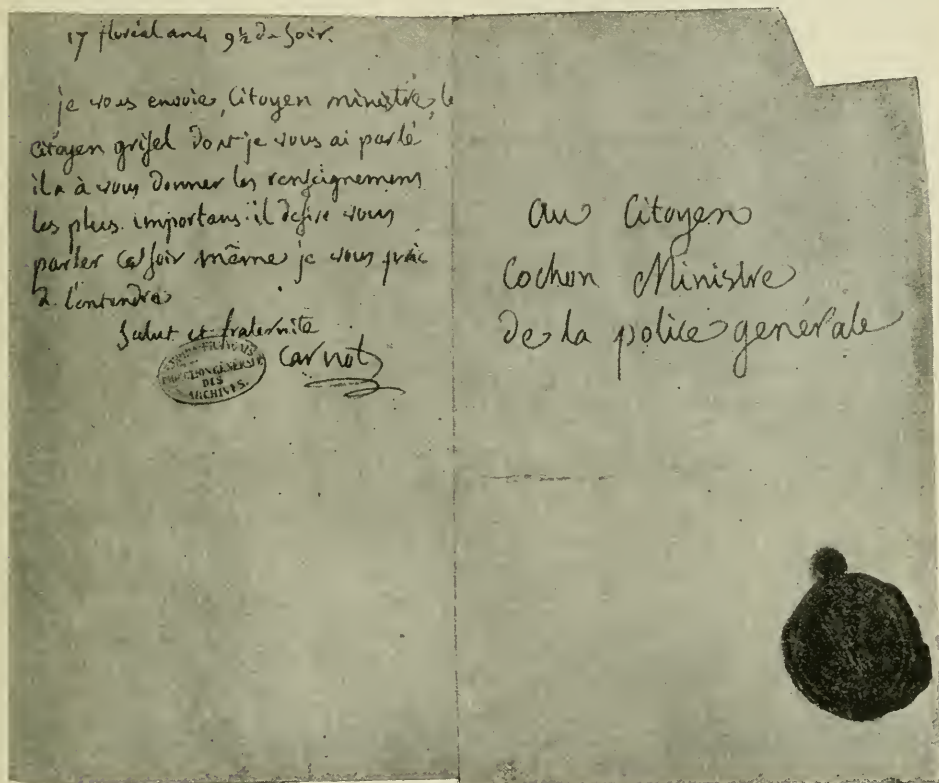 17 floréal an 4 9½ du soir.
je vous envoie, Citoyen ministre, le
citoyen grisel dont je vous ai parlé
il a à vous donner les renseignemens
les plus importans. il desire vous
parler ce soir même je vous prie
de l'entendre
Salut et fraternité
Carnot
DES
ARCHIVES.
au Citoyen
Cochon Ministre
de la police générale